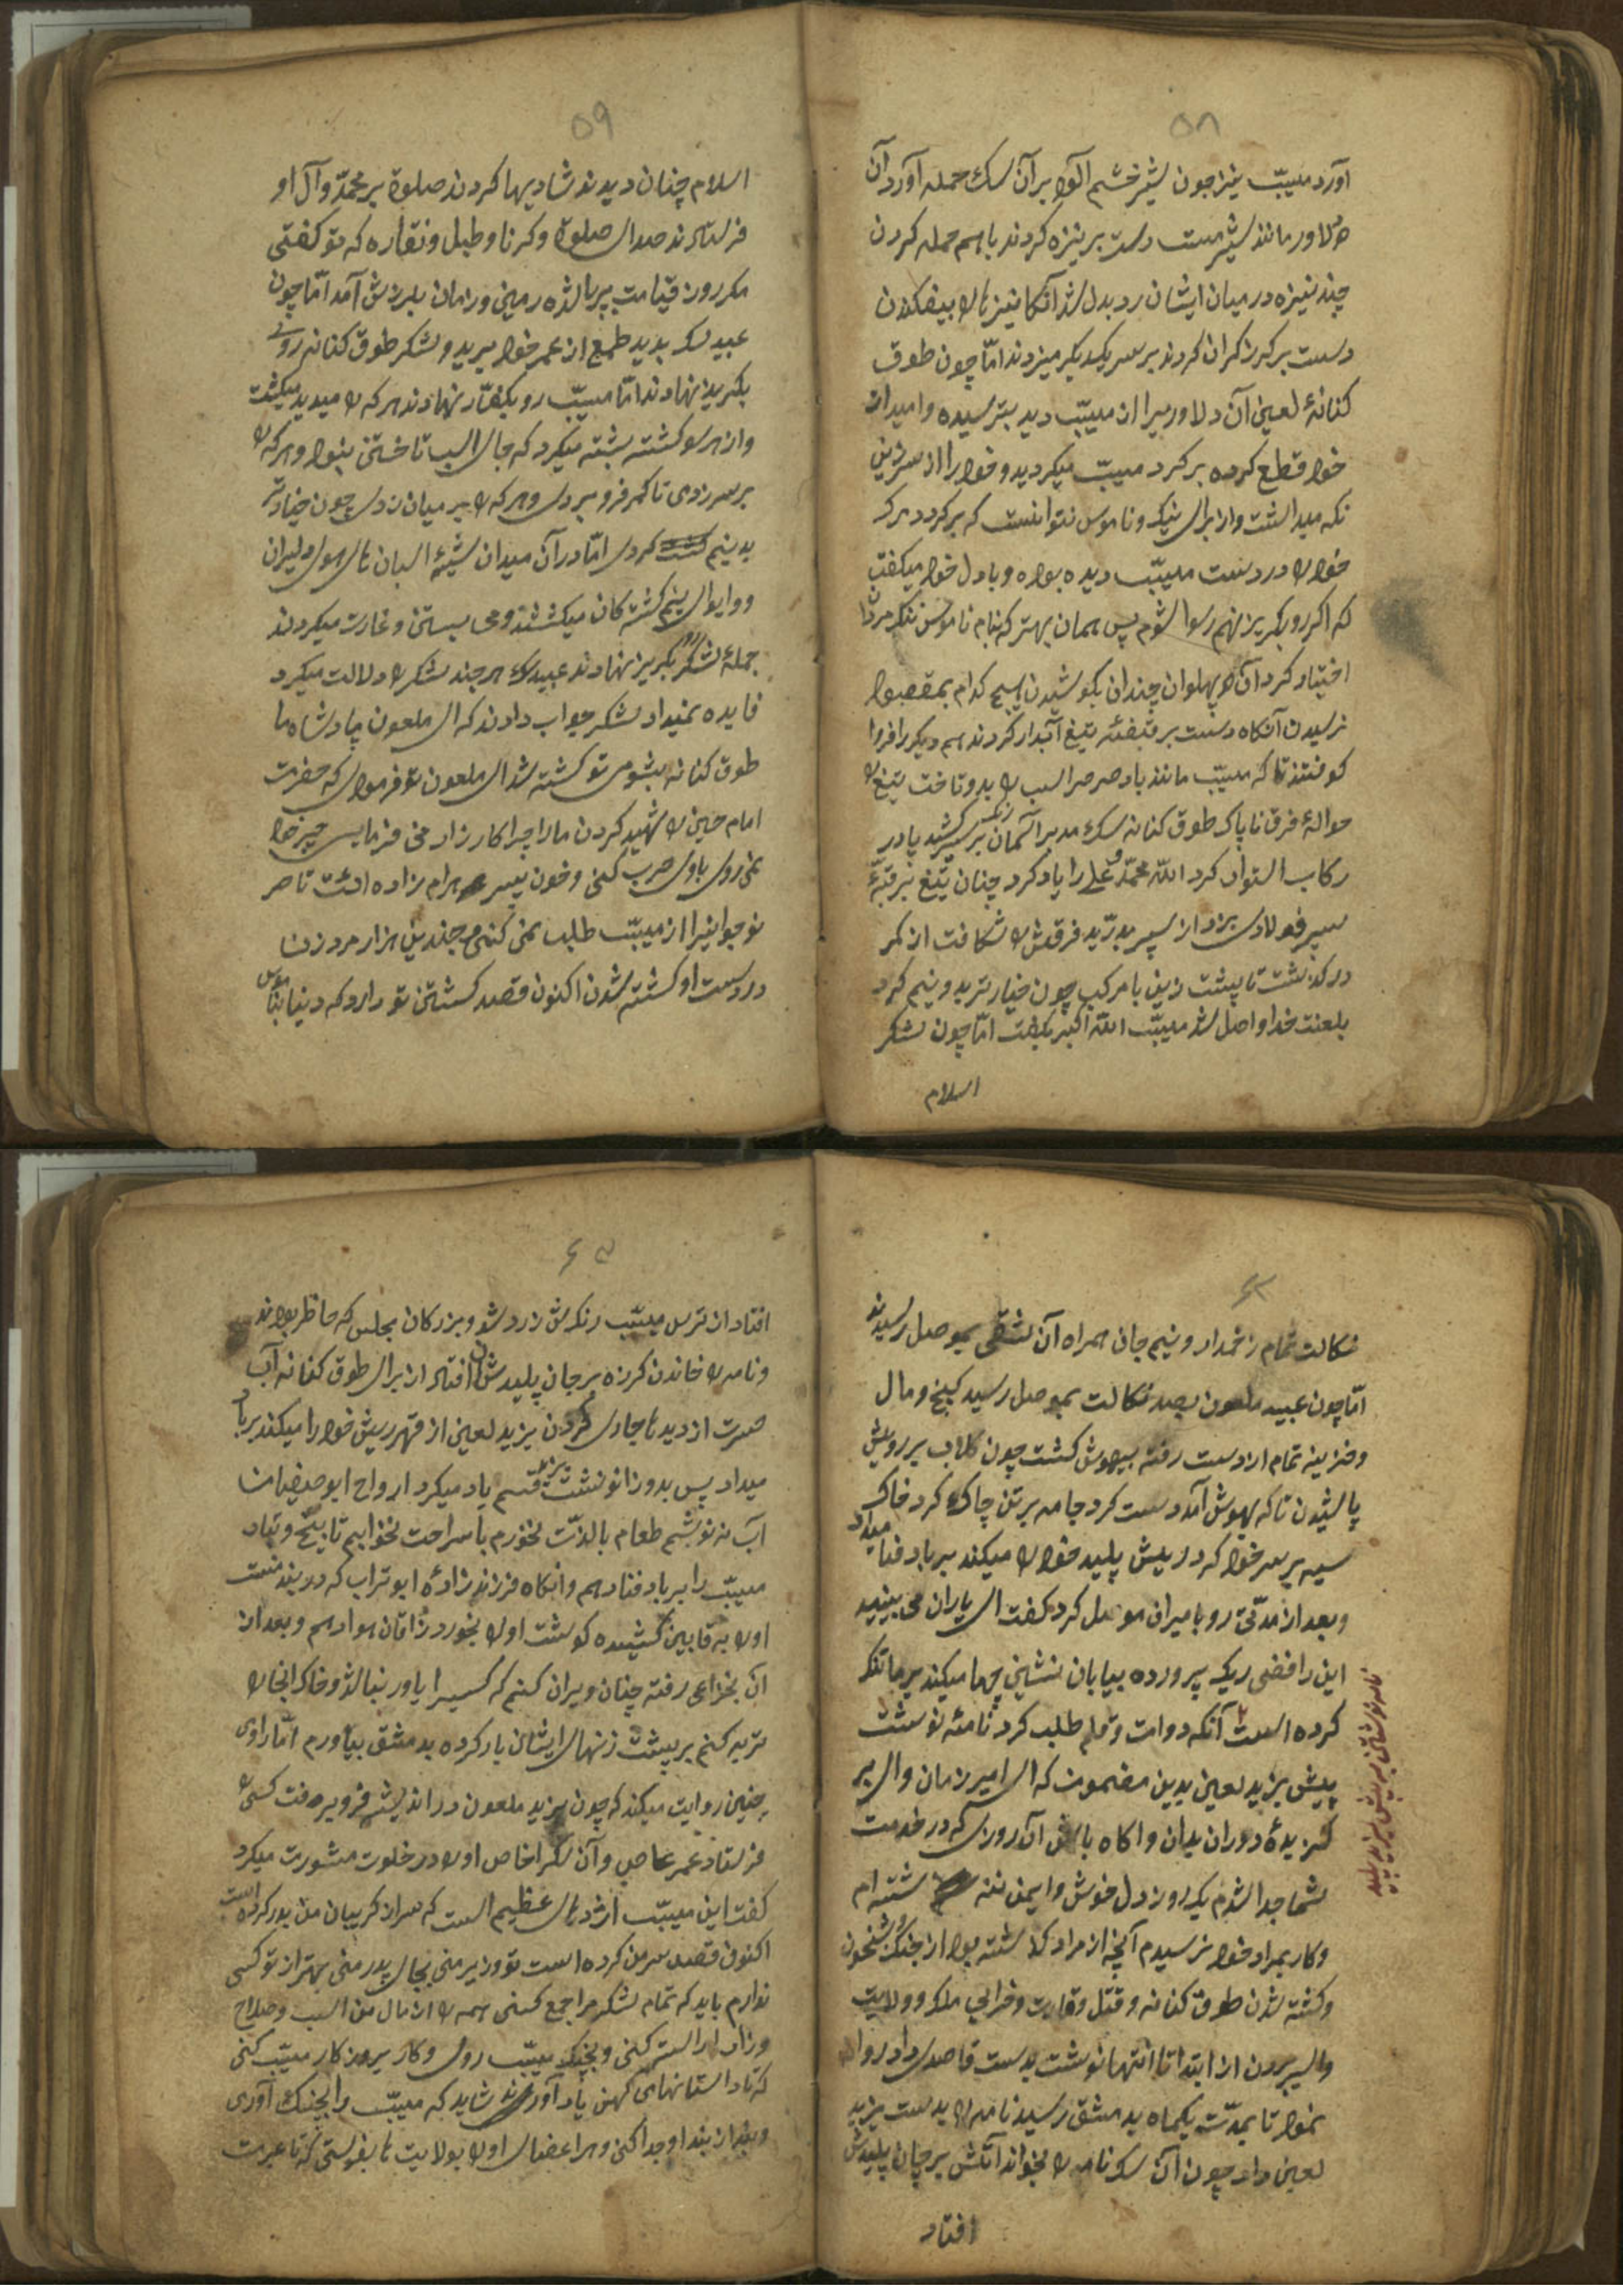 ۵۸
آورد مسیّب نیز چون شیر خشم آلود بر آن سک حمله آورد آن
دلاور مانند شیر مست دست بر نیزه کردند باهم حمله کردن
چند نیزه در میان ایشان رد بدل شد آنکا نیزها را بیفکندن
دست بر کرز کران کردند بر سر یکدیکر میزدند امّا چون طوق
کنانهٔ لعین آن دلاوریرا از مسیّب دید بترسیده و امید از
خود قطع کرده بر کرد مسیّب میکردید و خود را از سر زین
نکه میداشت و از برای ننک و ناموس نتوانست که بر کردد مرک
خود را در دست مسیّب دیده بود و با دل خود میکفت
که اکر رو بکریز نهم رسوا شوم پس همان بهتر که بنام ناموس ننکم مردن
اختیار کرد آن دو پهلوان چندان بکوشیدن هیچ کدام بمقصود
نرسیدن آنکاه دست بر قبضهٔ تیغ آبدار کردند هم دیکر را فرو
کوفتند تا که مسیّب مانند باد صرصر اسب را بدو تاخت تیغ را
حوالهٔ فرق ناپاک طوق کنانه سک مدبر آسمان سپر کشید پا در
رکاب استوار کرد الله محمّد و علی را یاد کرد چنان تیغ بر قبّهٔ
سپر فولادی بزد از سپر بدرّید فرقش را شکافت از کمر
در کذشت تا پشت زین با مرکب چون خیارتر بدو نیم کرد
بلعنت خدا واصل شد مسیّب الله اکبر بکفت امّا چون لشکر
اسلام
۵۹
اسلام چنان دیدند شادیها کردند صلوة بر محمّد و آل او
فرستادند صدای صلوة و کرنا و طبل و نقاره که تو کفتی
مکر روز قیامت برپا شده زمین و زمان بلرزش آمد امّا چون
عبید سک بدید طمع از عمر خود ببرید و لشکر طوق کنانه روی
بکریز نهادند امّا مسیّب رو بکفّار نهاد هر که را میدید میکشت
و از هر سو کشته پشته میکرد که جای اسب تاختن نبود و هر که را
بر سر زدی تا کمر فرو بردی و هر که را بر میان زدی چون خیار تر
بدینم کردی امّا در آن میدان شیههٔ اسبان های هوی دلیران
جملهٔ لشکر بکریز نهادند عبید سک هر چند لشکر را دلالت میکرد
فایده نمیداد لشکر جواب دادند که ای ملعون پادشاه ما
طوق کنانه بشومی تو کشته شد ای ملعون تو فرمودی که حضرت
امام حسین را شهید کردن مارا چرا کارزار می فرمایی
نمی روی با وی حرب کنی و خون پسر حرام زاده ات تا صر
نوجوانیرا از مسیّب طلب نمی کنی چندین هزار مرد زن
در دست او کشته شدن اکنون قصد کشتن تو دارد که دنیا بناموس
شکالت تمام زخمدار و نیم جان همراه آن شقی بموصل رسیدند
امّا چون عبید ملعون بصد شکالت بموصل رسید کنج و مال
و خزینه تمام از دست رفته بیهوش کشت چون کلاب بر رویش
پاشیدن تا که بهوش آمد دست کرد جامه بر تن چاک کرد خاک
سیه بر سر خود کرد ریش پلید خود را میکند بر باد فنا میداد
و بعد از مدّتی رو بامیران موصل کرد کفت ای یاران می بینید
این رافضی ریک پرورده بیابان نشین چها میکند بر ما تنک
کرده است آنکه دوات و قلم طلب کرد نامهٔ نوشت
پیش یزید لعین بدین مضمون که ای امیر زمان و ای بر
کزیدهٔ دوران بدان و اکاه باش از آن روزی که در خدمت
شما جدا شدم یک روز دل خوش و ایمن ننه شسته ام
و کار بمراد خود نرسیدم آنچه از مراد کذشته بود از جنک و شبخون
و کشته شدن طوق کنانه و قتل و غارت و خرابی ملک و ولایت
و اسیر بردن از ابتدا تا انتها نوشت بدست قاصدی داد روانه
نمود تا بمدّت یکماه بدمشق رسید نامه را بدست یزید
لعین داد چون آن سک نامه را بخواند آتش بر جان پلیدش
افتاد
نامه نوشتن بپیش یزید پلید
افتاد از ترس مسیّب رنکش زرد شد و بزرکان مجلس که حاظر بودند
و نامه را خاندن لرزه بر جان پلیدشان افتاد از برای طوق کنانه آب
حسرت از دیدها جاری کردن یزید لعین از قهر ریش خود را میکند بر باد
میداد پس بدو زانو نشست یزید قسم یاد میکرد ارواح ابوسفیان
آب نه نوشم طعام با لذّت نخورم باسراحت نخوابم تا بیخ و بنیاد
مسیّب را بر باد فنا دهم و آنکاه فرزند زادهٔ ابو تراب که در بند منست
اورا به قابین کشیده کوشت اورا بخورد زاقان هوا دهم و بعد از
آن بخزاعی رفته چنان ویران کنم که کسیرا یاور نباشد و خاک آنجارا
توبره کنم بر پشت زنهای ایشان بار کرده بدمشق بیاورم امّا راوی
چنین روایت میکند که چون یزید ملعون در اندیشه فرو برفت کسی را
فرستاد عمر عاص و آن سکرا خاص اورا در خلوت مشورت میکرد
کفت این مسیّب اژدهای عظیم است که سر از کریبان من بدر کرده است
اکنون قصد سر من کرده است تو وزیر منی بجای پدر منی بهتر از تو کسی
ندارم باید که تمام لشکر مرا جمع کنی همه را از مال من اسب و صلاح
و زاد راست کنی و بجنک مسیّب روی و کار بروزکار مسیّب کنی
که تا داستانهای کهن یاد آورند شاید که مسیّب را بچنک آوری
و بند از بند او جدا کنی و هر اعضای اورا بولایت ها بفرستی که تا عبرت